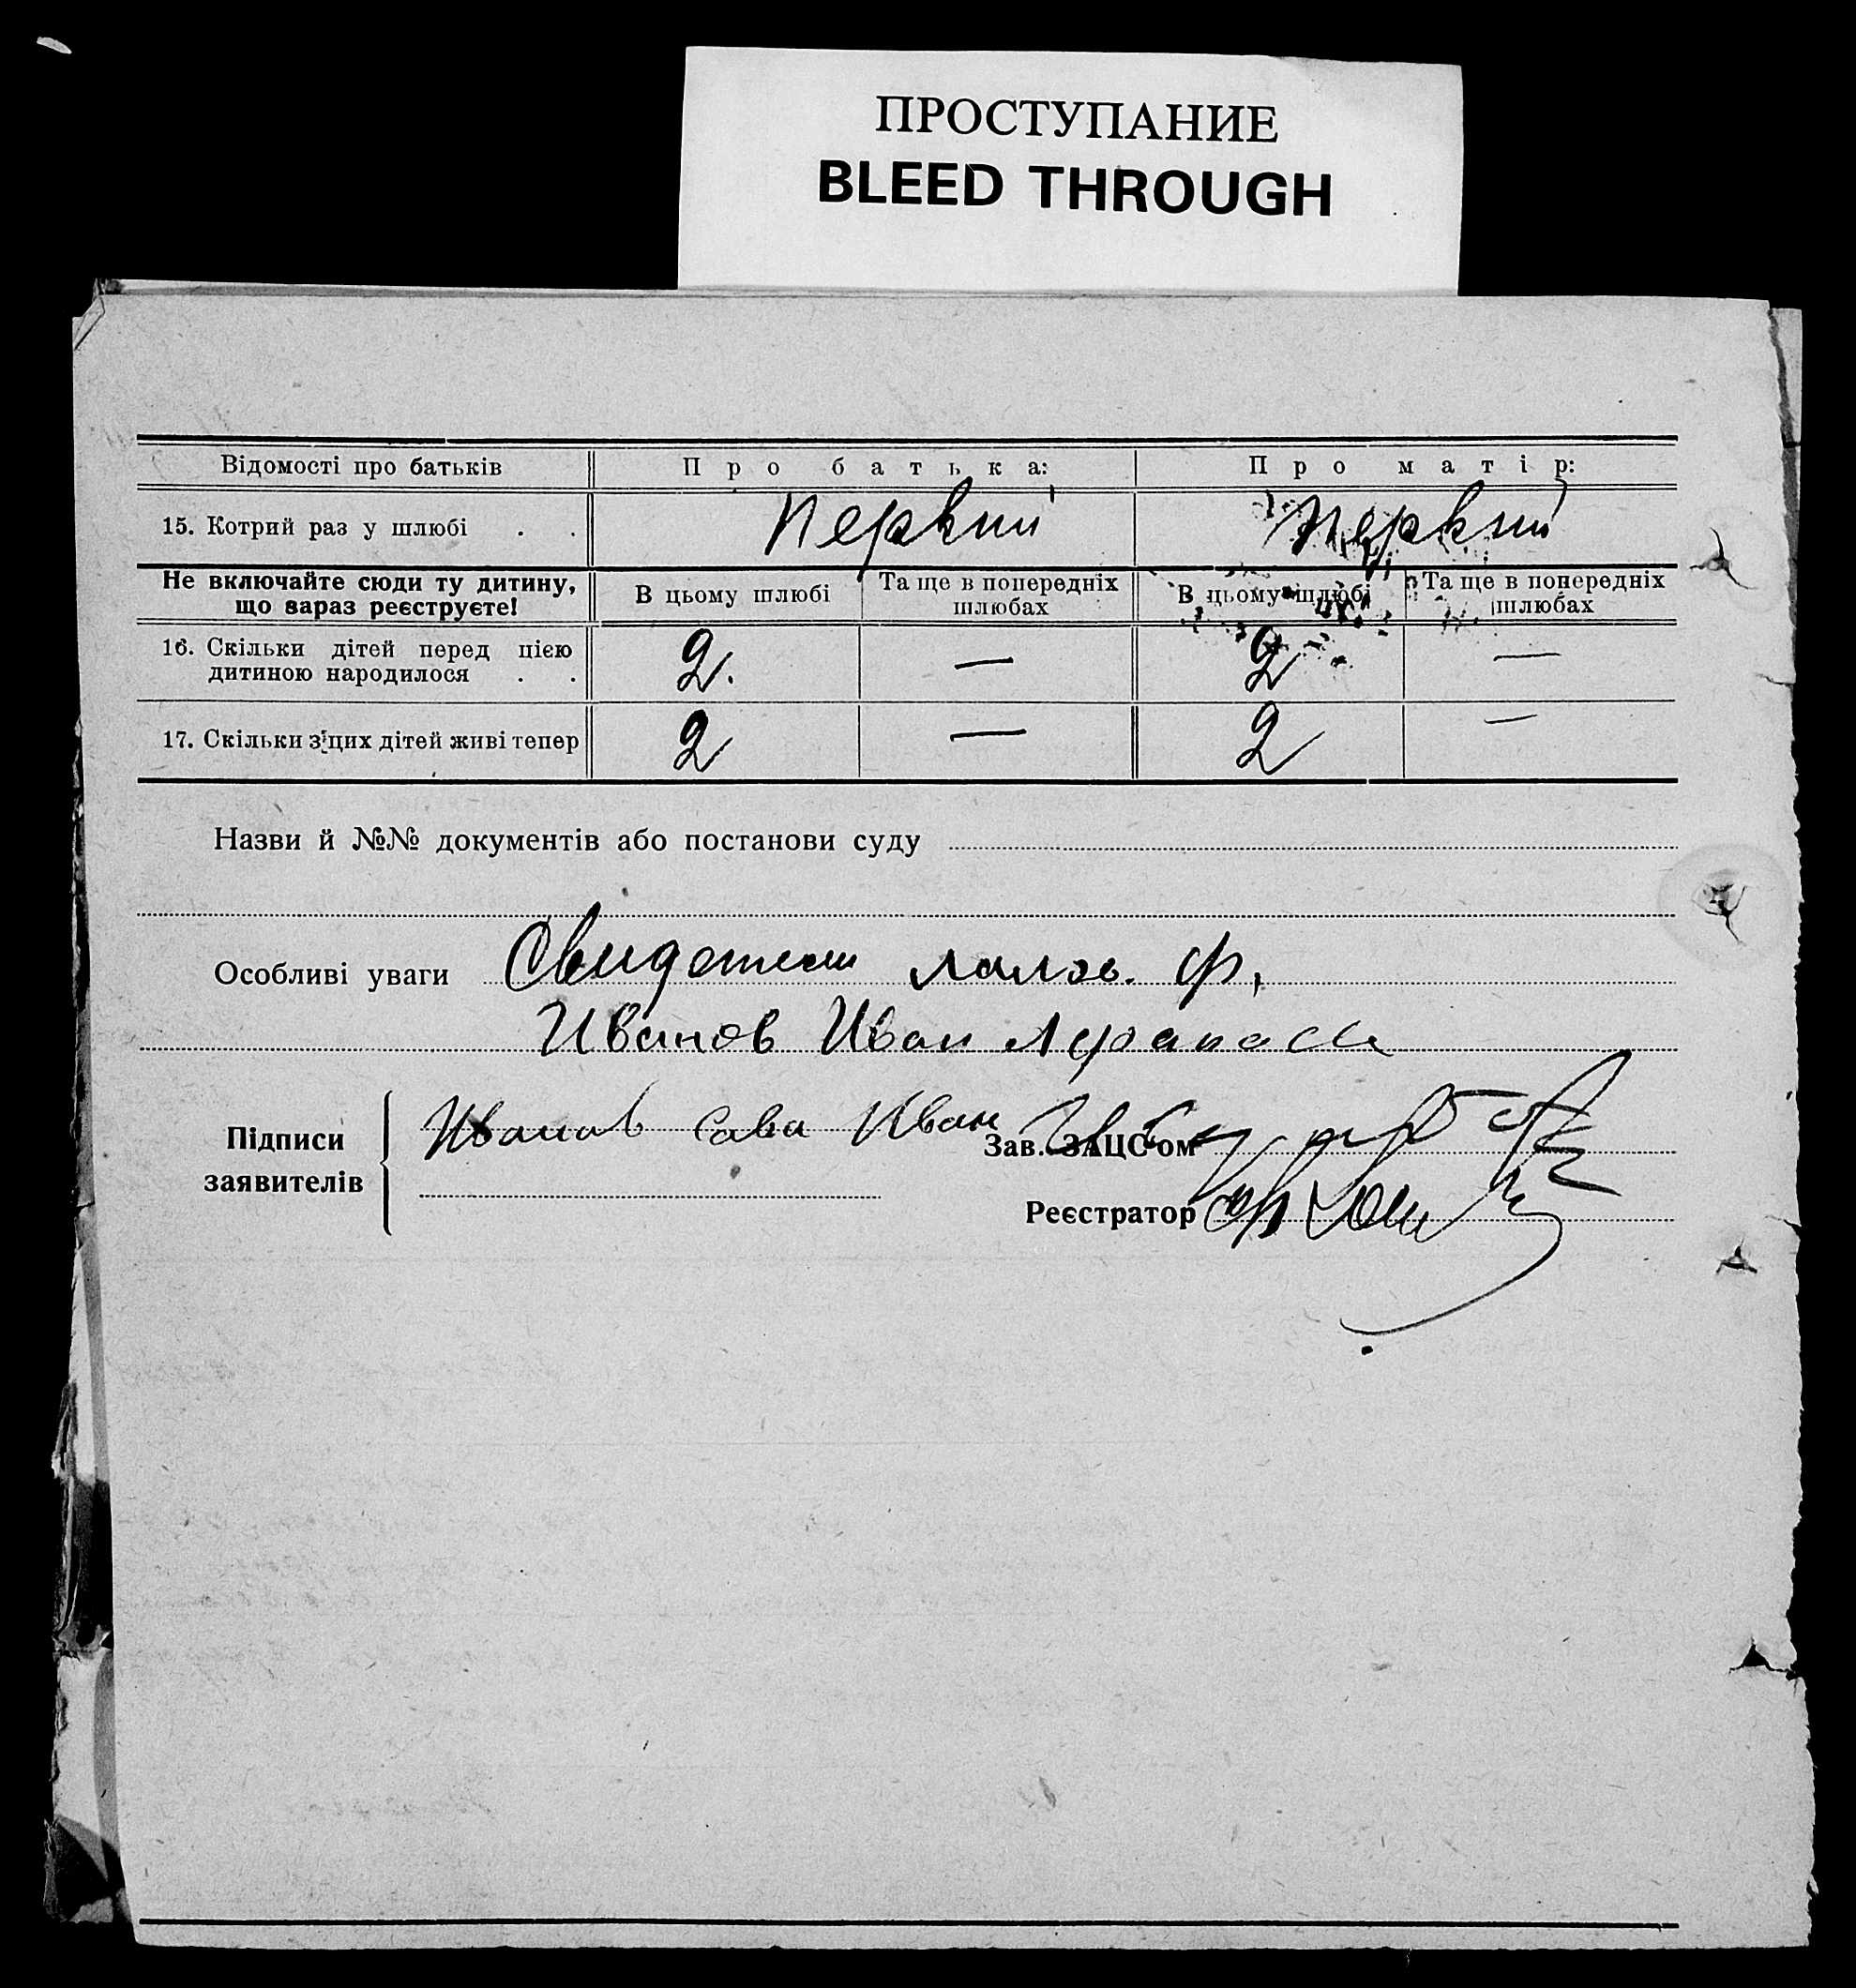 ПРОСТУПАНИЕ
BLEED THROUGH
Відомості про батьків Про батька: Про матір:
15. Котрий раз у шлюбі . . Первый Первый
Не включайте сюди ту дитину, що зараз реєструєте! В цьому шлюбі Та ще в попередніх шлюбах В цьому шлюбі Та ще в попередніх шлюбах
16. Скільки дітей перед цією дитиною народилося . . 2. — 2 —
17. Скільки з цих дітей живі тепер 2 — 2 —
Назви й №№ документів або постанови суду
Особливі уваги Свидетели
Иванов Иван
Підписи заявителів Иванов Сава Иван
Зав. ЗАЦС'ом
Реєстратор